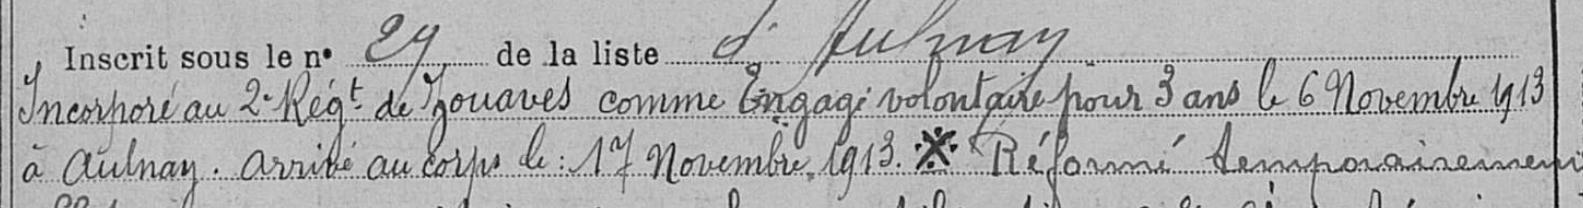 Inscrit sous le n° 29 de la liste d'Aulnay
Incorporé au 2e Régt de Zouaves comme Engagé volontaire pour 3 ans le 6 Novembre 1913
à Aulnay. Arrivé au corps le : 17 Novembre 1913. ※ Réformé temporairement